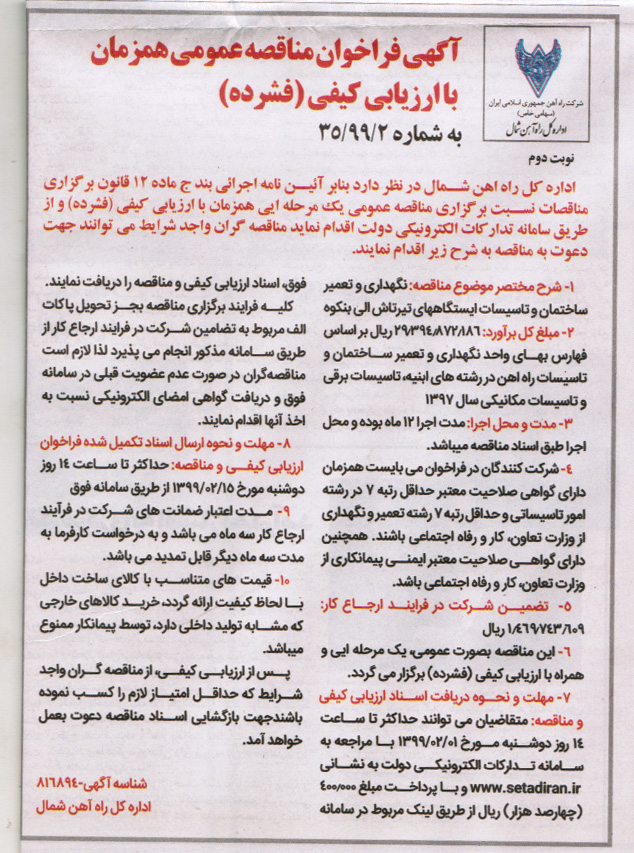 آگهی فراخوان مناقصه عمومی همزمان
با ارزیابی کیفی (فشرده)
به شماره ۳۵/۹۹/۲
شرکت راه آهن جمهوری اسلامی ایران
(سهامی خاص)
اداره کل راه آهن شمال
نوبت دوم
اداره کل راه اهن شمال در نظر دارد بنابر آئین نامه اجرائی بند ج ماده ۱۲ قانون برگزاری
مناقصات نسبت برگزاری مناقصه عمومی یک مرحله ایی همزمان با ارزیابی کیفی (فشرده) و از
طریق سامانه تدارکات الکترونیکی دولت اقدام نماید مناقصه گران واجد شرایط می توانند جهت
دعوت به مناقصه به شرح زیر اقدام نمایند.
۱- شرح مختصر موضوع مناقصه: نگهداری و تعمیر
ساختمان و تاسیسات ایستگاههای تیرتاش الی بنکوه
۲- مبلغ کل برآورد: ۲۹/۳۹۴/۸۷۲/۱۸۶ ریال بر اساس
فهارس بهای واحد نگهداری و تعمیر ساختمان و
تاسیسات راه اهن در رشته های ابنیه، تاسیسات برقی
و تاسیسات مکانیکی سال ۱۳۹۷
۳- مدت و محل اجرا: مدت اجرا ۱۲ ماه بوده و محل
اجرا طبق اسناد مناقصه میباشد.
۴- شرکت کنندگان در فراخوان می بایست همزمان
دارای گواهی صلاحیت معتبر حداقل رتبه ۷ در رشته
امور تاسیساتی و حداقل رتبه ۷ رشته تعمیر و نگهداری
از وزارت تعاون، کار و رفاه اجتماعی باشند. همچنین
دارای گواهی صلاحیت معتبر ایمنی پیمانکاری از
وزارت تعاون، کار و رفاه اجتماعی باشد.
۵- تضمین شرکت در فرایند ارجاع کار:
۱/۴۶۹/۷۴۳/۶۰۹ ریال
۶- این مناقصه بصورت عمومی، یک مرحله ایی و
همراه با ارزیابی کیفی (فشرده) برگزار می گردد.
۷- مهلت و نحوه دریافت اسناد ارزیابی کیفی
و مناقصه: متقاضیان می توانند حداکثر تا ساعت
۱۴ روز دوشنبه مورخ ۱۳۹۹/۰۲/۰۱ با مراجعه به
سامانه تدارکات الکترونیکی دولت به نشانی
www.setadiran.ir و با پرداخت مبلغ ۴۰۰/۰۰۰
(چهارصد هزار) ریال از طریق لینک مربوط در سامانه
فوق، اسناد ارزیابی کیفی و مناقصه را دریافت نمایند.
کلیه فرایند برگزاری مناقصه بجز تحویل پاکات
الف مربوط به تضامین شرکت در فرایند ارجاع کار از
طریق سامانه مذکور انجام می پذیرد لذا لازم است
مناقصه‌گران در صورت عدم عضویت قبلی در سامانه
فوق و دریافت گواهی امضای الکترونیکی نسبت به
اخذ آنها اقدام نمایند.
۸- مهلت و نحوه ارسال اسناد تکمیل شده فراخوان
ارزیابی کیفی و مناقصه: حداکثر تا ساعت ۱۴ روز
دوشنبه مورخ ۱۳۹۹/۰۲/۱۵ از طریق سامانه فوق
۹- مدت اعتبار ضمانت های شرکت در فرآیند
ارجاع کار سه ماه می باشد و به درخواست کارفرما به
مدت سه ماه دیگر قابل تمدید می باشد.
۱۰- قیمت های متناسب با کالای ساخت داخل
با لحاظ کیفیت ارائه گردد، خرید کالاهای خارجی
که مشابه تولید داخلی دارد، توسط پیمانکار ممنوع
میباشد.
پس از ارزیابی کیفی، از مناقصه گران واجد
شرایط که حداقل امتیاز لازم را کسب نموده
باشندجهت بازگشایی اسناد مناقصه دعوت بعمل
خواهد آمد.
شناسه آگهی-۸۱۶۸۹۴
اداره کل راه آهن شمال